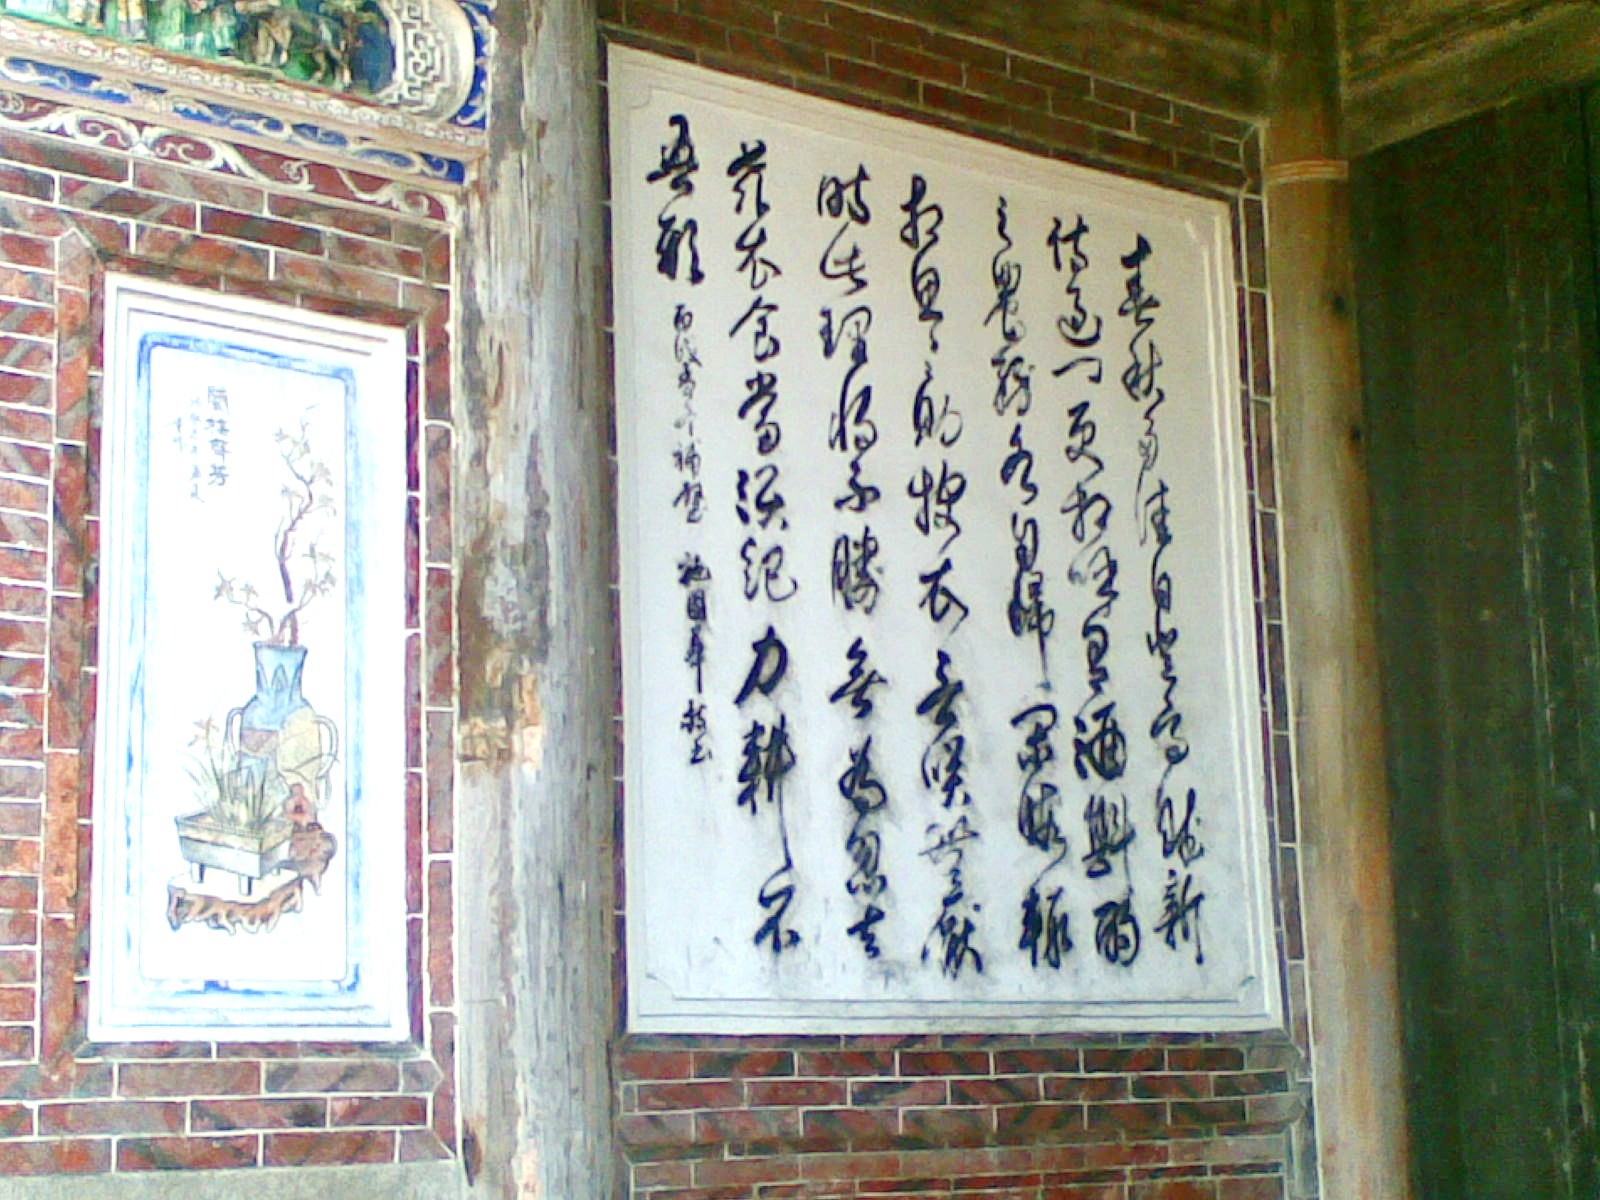 春秋多佳日登高賦新
詩過門更相呼有酒斟酌
之農務各自歸閑暇輒
相思〻〻則披衣言笑無厭
時此理將不勝無為忽去
茲衣食當須紀力耕不
吾欺 丙戌 補壁 施國華 敬書
蘭桂齊芳